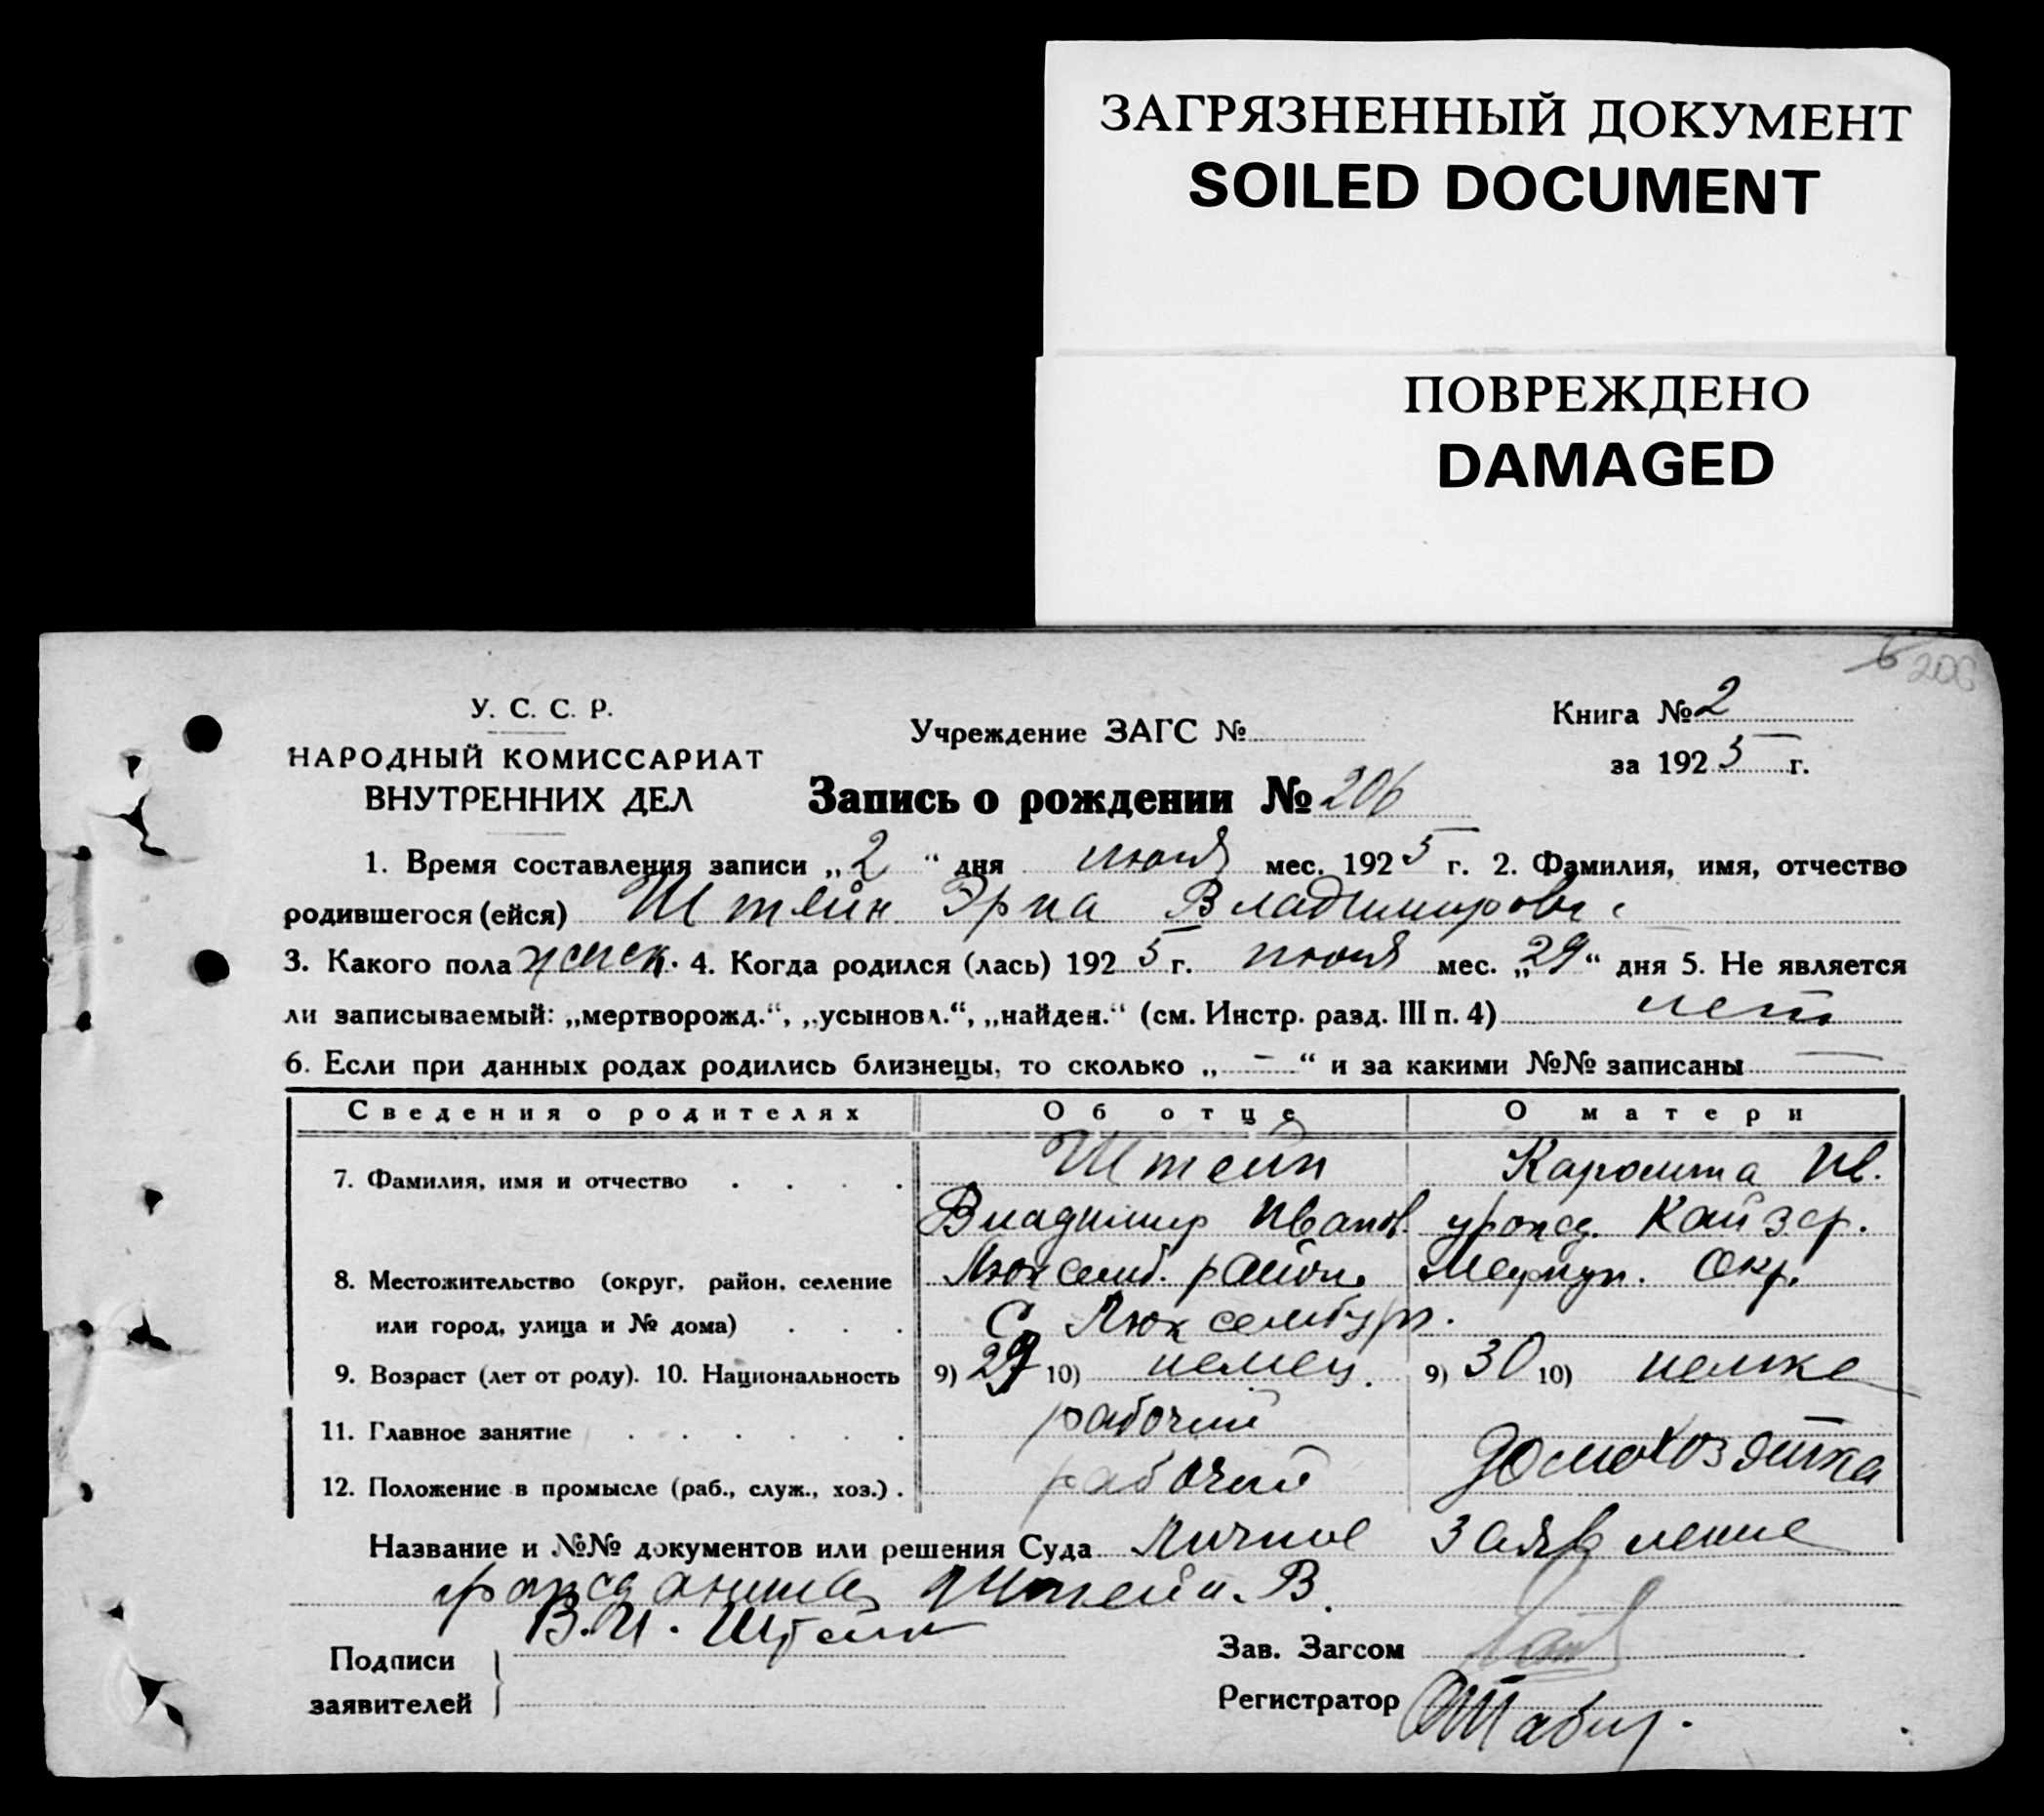 ЗАГРЯЗНЕННЫЙ ДОКУМЕНТ
SOILED DOCUMENT
ПОВРЕЖДЕНО
DAMAGED
6 206
У. С. С. Р.
НАРОДНЫЙ КОМИССАРИАТ
ВНУТРЕННИХ ДЕЛ
Учреждение ЗАГС №
Книга № 2
за 1925 г.
Запись о рождении № 206
1. Время составления записи „2“ дня июля мес. 1925 г. 2. Фамилия, имя, отчество
родившегося (ейся) Штейн Эрна Владимировн
3. Какого пола женск. 4. Когда родился (лась) 1925 г. июня мес. „29“ дня 5. Не является
ли записываемый: „мертворожд.“, „усыновл.“, „найден.“ (см. Инстр. разд. III п. 4) нет
6. Если при данных родах родились близнецы, то сколько „—“ и за какими №№ записаны —
Сведения о родителях Об отце О матери
7. Фамилия, имя и отчество . . . . Штейн Каролина Ив.
Владимир Иванов. урожд. Кайзер.
8. Местожительство (округ, район, селение Люксемб. район Мариуп. Окр.
или город, улица и № дома) . . . С. Люксембург.
9. Возраст (лет от роду). 10. Национальность 9) 29 10) немец. 9) 30 10) немка
11. Главное занятие . . . . . . рабочий
12. Положение в промысле (раб., служ., хоз.) . рабочий домохозяйка
Название и №№ документов или решения Суда Личное заявление
гражданина Штейн. В.
Подписи
заявителей
В. И. Штейн
Зав. Загсом
Регистратор